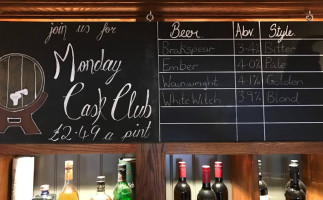 join us for
Monday
Cask Club
£2.49 a pint
Beer Abv. Style
Brakspear 3.4% Bitter
Ember 4.0% Pale
Wainwright 4.1% Golden
White Witch 3.9% Blond